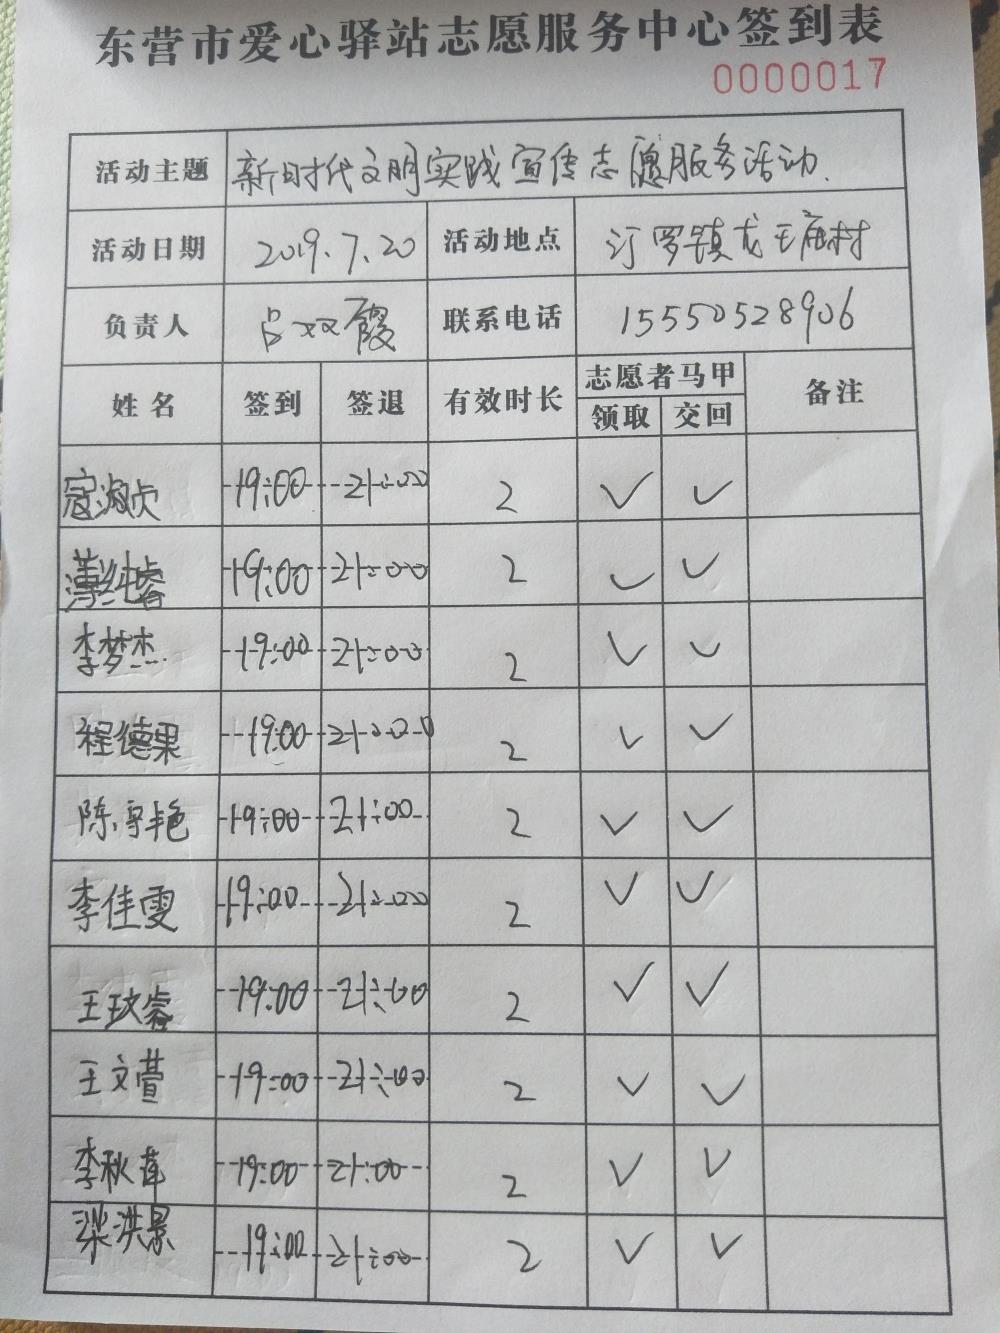 东营市爱心驿站志愿服务中心签到表
0000017
活动主题 新时代文明实践宣传志愿服务活动.
活动日期 2019.7.20 活动地点 汀罗镇龙王庙村
负责人 吕双霞 联系电话 15550528906
姓名 签到 签退 有效时长 志愿者马甲 备注
领取 交回
寇淑贞 19:00 21:00 2 ✓ ✓
薄纯睿 19:00 21:00 2 ✓ ✓
李梦杰 19:00 21:00 2 ✓ ✓
程德果 19:00 21:00 2 ✓ ✓
陈宇艳 19:00 21:00 2 ✓ ✓
李佳雯 19:00 21:00 2 ✓ ✓
王玟睿 19:00 21:00 2 ✓ ✓
王文萱 19:00 21:00 2 ✓ ✓
李秋莲 19:00 21:00 2 ✓ ✓
梁洪景 19:00 21:00 2 ✓ ✓